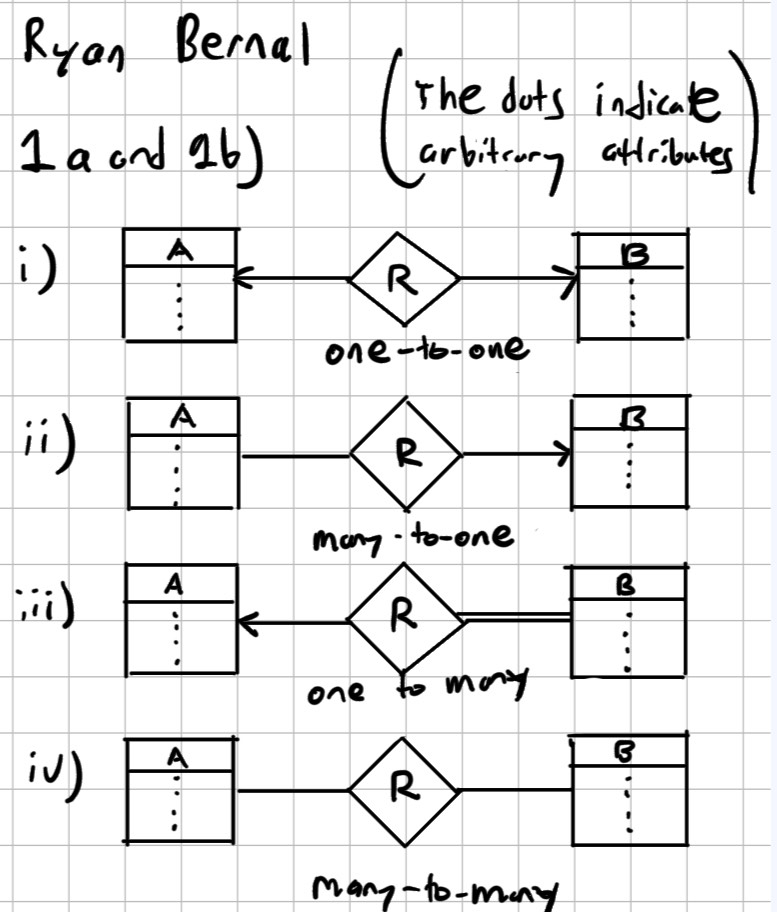 Ryan Bernal
(The dots indicate
arbitrary attributes)
1a and 1b)
i)
A
R
B
one-to-one
ii)
A
R
B
many-to-one
iii)
A
R
B
one to many
iv)
A
R
B
many-to-many